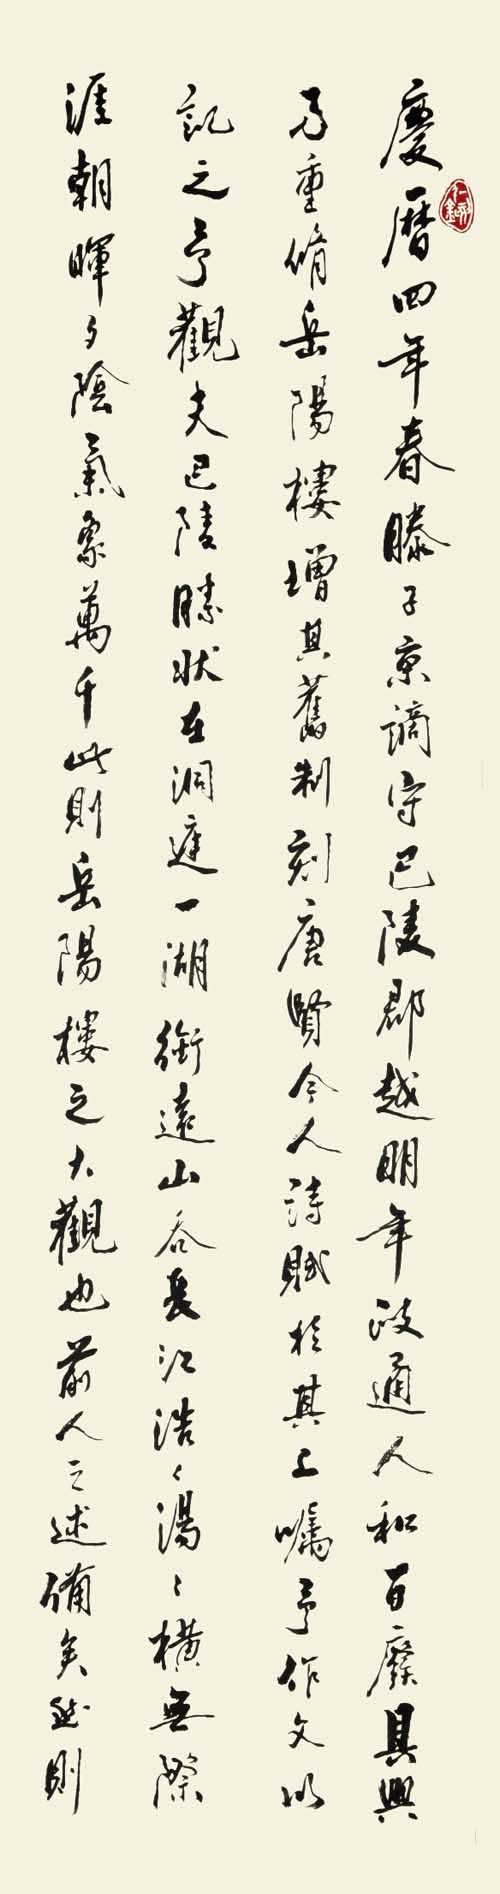 慶曆四年春滕子京謫守巴陵郡越明年政通人和百廢具興
乃重脩岳陽樓增其舊制刻唐賢今人詩賦於其上囑予作文以
記之予觀夫巴陵勝狀在洞庭一湖銜遠山吞長江浩〻湯〻橫無際
涯朝暉夕陰氣象萬千此則岳陽樓之大觀也前人之述備矣然則